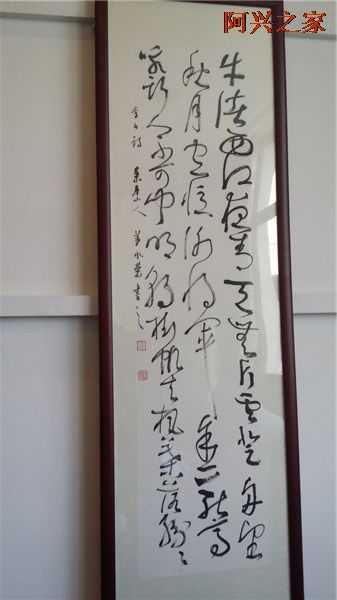 阿兴之家
牛渚西江夜青天無片雲登舟望
秋月空憶謝將軍余亦能高
詠斯人不可聞明朝掛帆去楓葉落紛々
李白詩 人 書之